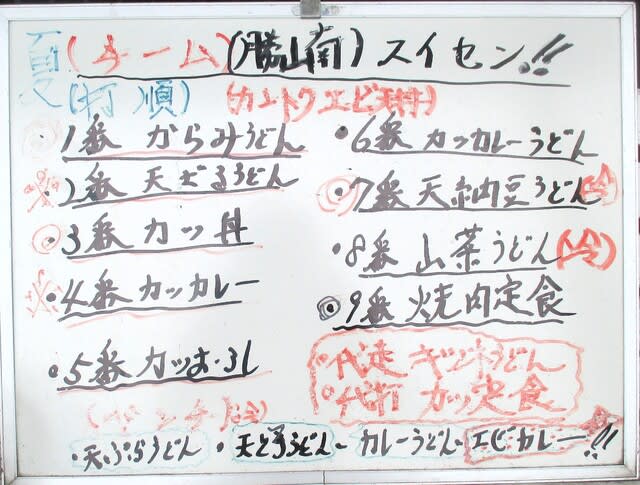 夏(チーム)(勝山南)スイセン!!
(打順) (カントクエビ天丼)
1番 からみうどん
2番 天ざるうどん
3番 カツ丼
4番 カツカレー
5番 カツおろし
6番 カツカレーうどん
7番 天納豆うどん(冷)
8番 山菜うどん(冷)
9番 焼肉定食
代走 キツネうどん
代打 カツ定食
(ベンチ
・天ぷらうどん・天とろうどん・カレーうどん・エビカレー!!